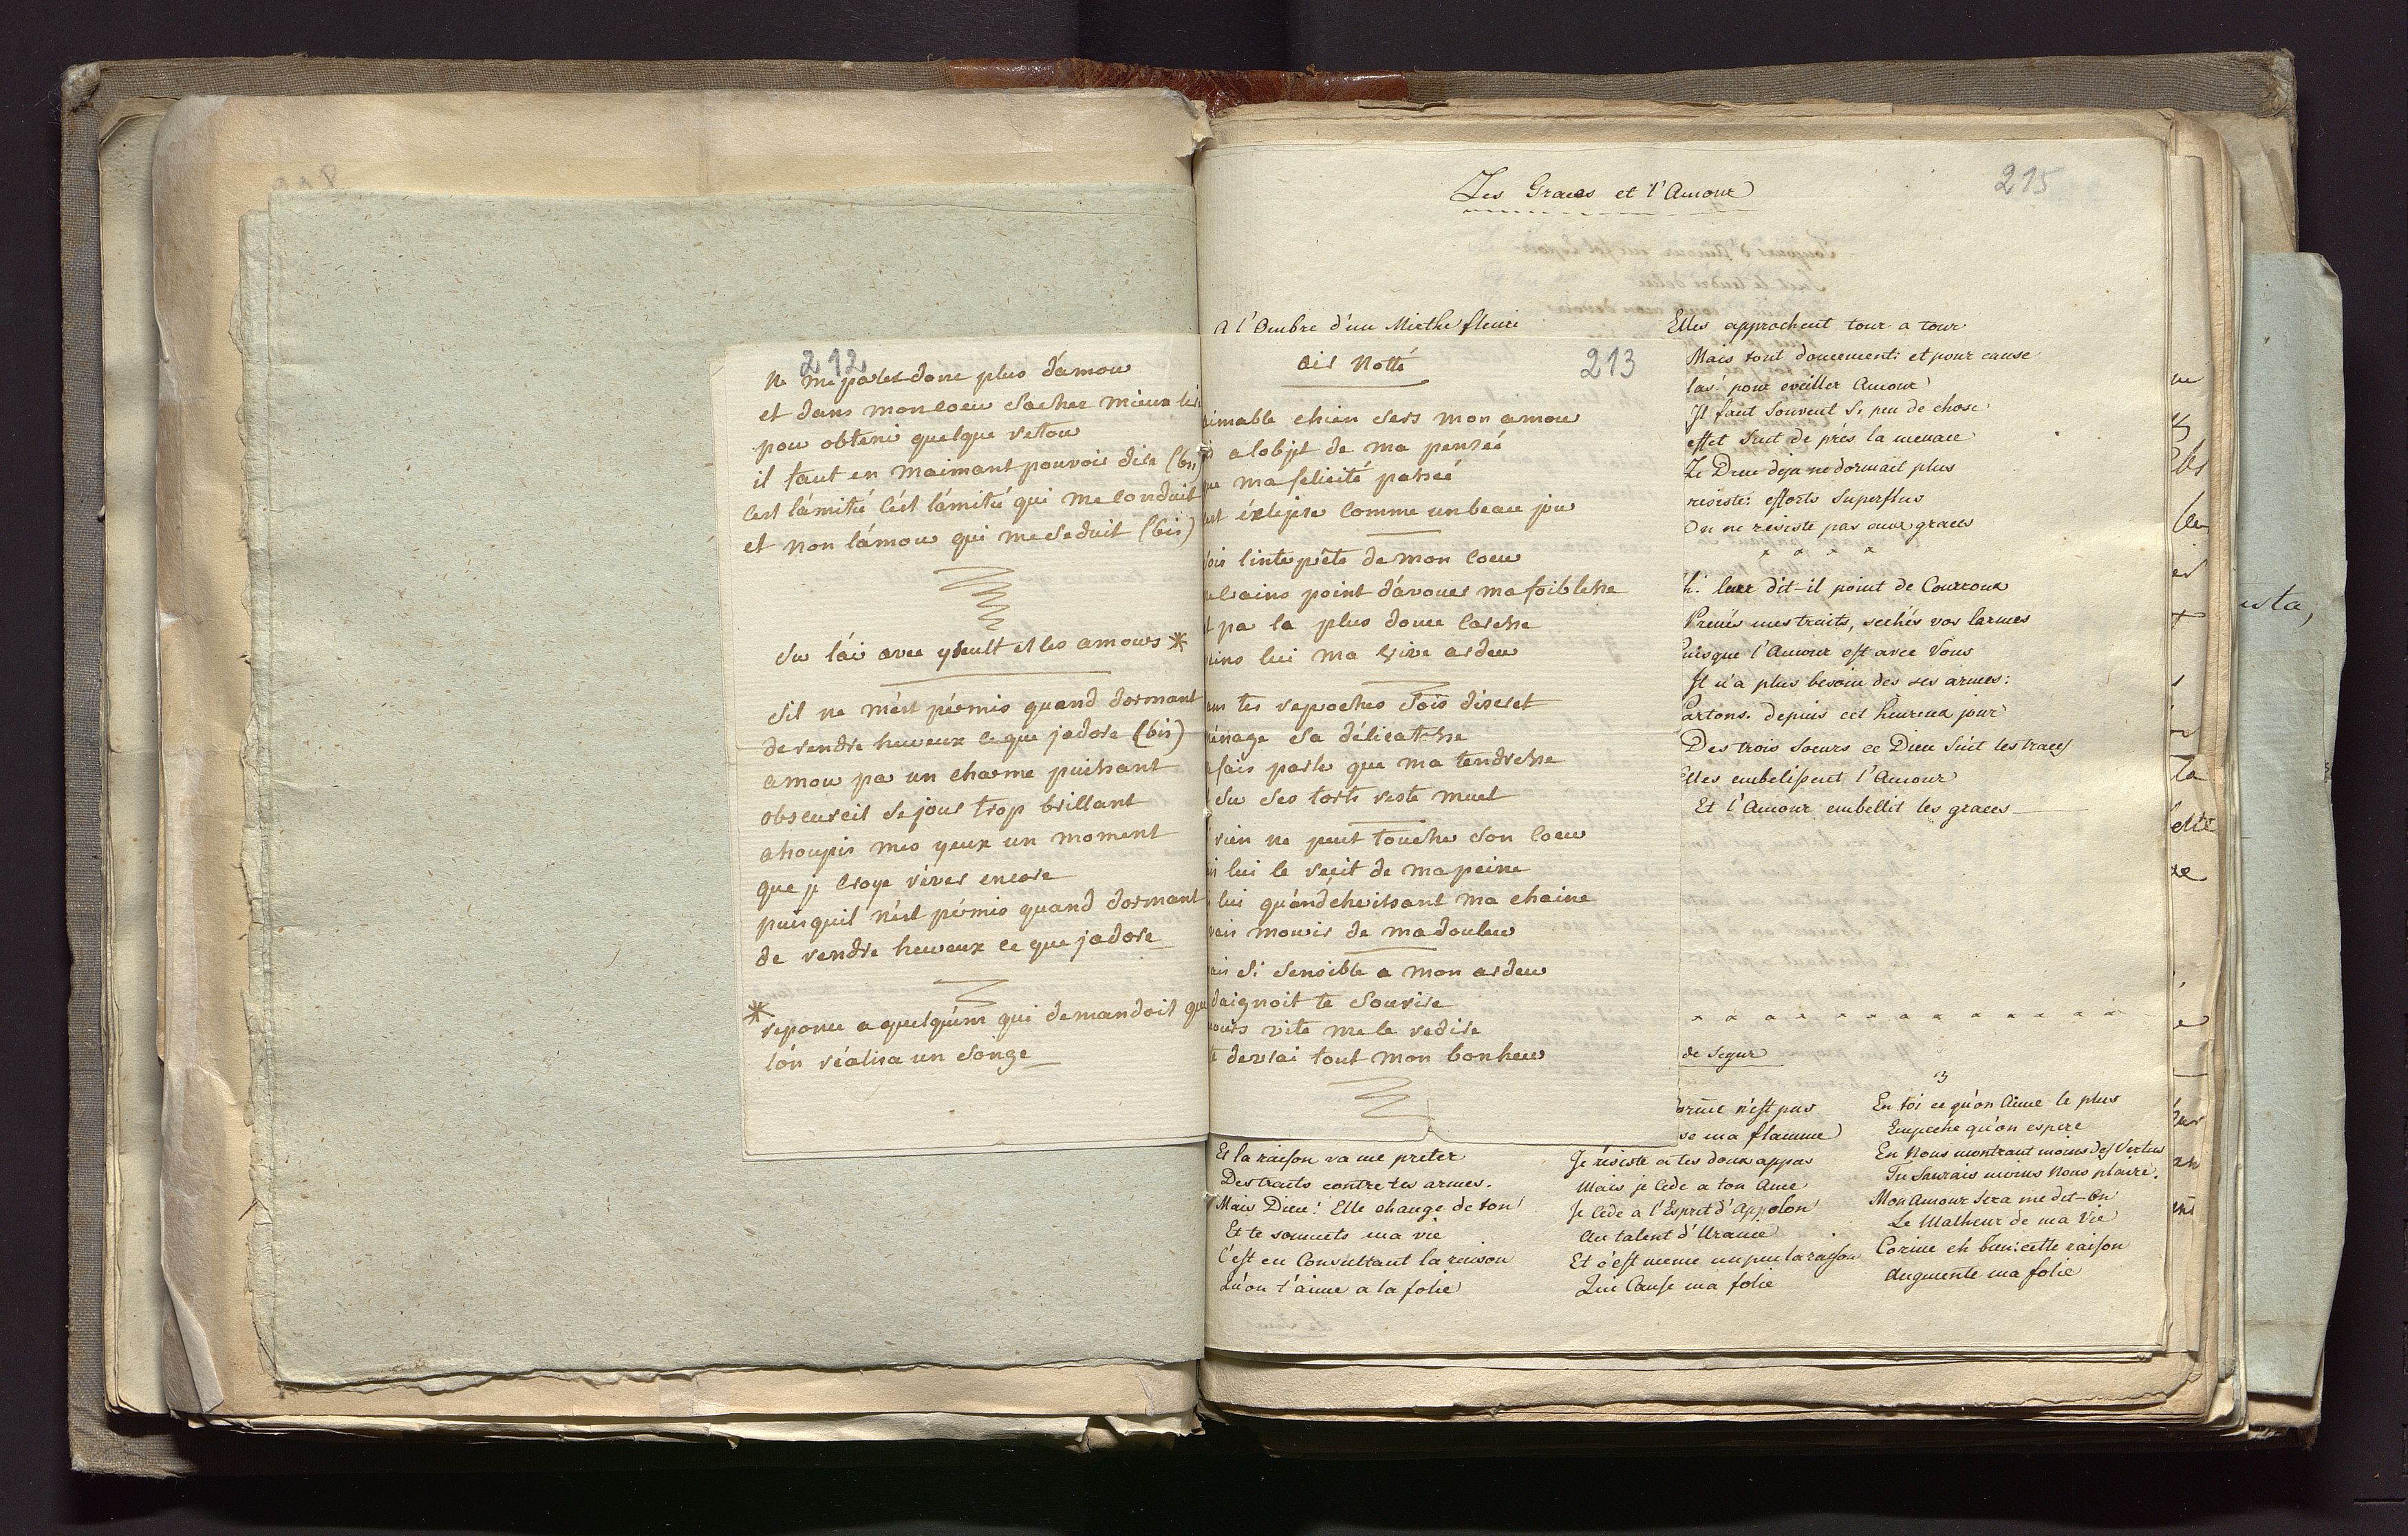 212
ne me parlez donc plus d'amou
et dans mon coeu sachez mieux lire
pou obteni quelque retou
il faut en maimant pouvoir dire (bis
cest lámitié cést lámitié qui me conduit
et non lámou qui me séduit (bis)
Su láir avec yseult et les amours *
sil ne mést pérmis quand dormant
de rendre heureux ce que jadore (bis)
amou pa un charme puissant
obscurcit se jour trop brillant
assoupis mes yeux un moment
que je croye réver encore
puisquil nést pérmis quand dormant
de rendre heureux ce que jadore
* reponce a quelquún qui demandoit que
lón réalisa un songe
213
air Notté
aimable chien sers mon amou
alobjet de ma pensée
ma félicité passée
éxlipse comme un beau jou
sois lintepréte de mon coeu
crains point dávouer ma foiblesse
pa la plus douce caresse
lui ma vive ardeu
tes reproches sois discret
ménage sa délicatesse
fais parler que ma tendresse
Su ses torts reste muet
rien ne peut touche son coeu
lui le récit de ma peine
lui quándchérissant ma chaine
mourir de ma douleu
si sensible a mon ardeu
daignoit te sourire
vite me le redire
devrai tout mon bonheu
215
Les Graces et l'Amour
A l'Ombre d'un Mirthe fleuri
Elles approchent tour a tour
Mais tout doucement: et pour cause
las! pour eveiller Amour
Il faut Souvent Si peu de chose
effet Suit de près la menace
Le Dieu déja ne dormait plus
resiste: efforts Superflus
On ne resiste pas aux graces
leur dit-il point de Courroux
Prenés mes traits, sechés vos larmes
Puisque l'Amour est avec Vous
Il n'a plus besoin des ses armes:
Partons. depuis cet heureux jour
Des trois soeurs ce Dieu Suit les traces
Elles embelissent l'Amour
Et l'Amour embellit les graces
de Segur
n'est pas
ma flamme
Et la raison va me preter
Des traits contre tes armes.
Mais Dieu! Elle change de ton
Et te soumets ma vie
C'est en Consultant la raison
Qu'on t'aime a la folie
Je résiste a tes doux appas
Mais je Cède a ton Ame
Je Cède a l'Esprit d'Appolon
Au talent d'Uranie
Et c'est meme un peu la raison
Qui Cause ma folie
3
En toi ce qu'on Aime le plus
Empeche qu'on espere
En Nous montrant moins des Vertus
Tu Saurais moins Nous plaire.
Mon Amour Sera me dit-On
Le Malheur de ma Vie
Corine eh bien: cette raison
Augmente ma folie